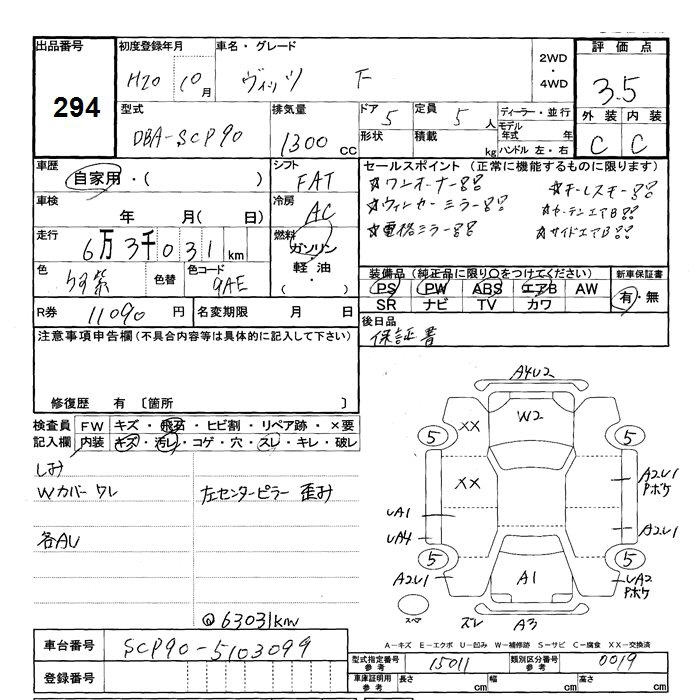 出品番号 初度登録年月 車名・グレード 2WD・4WD 評価点
294 H20 10月 ヴィッツ F 3.5
型式 排気量 ドア 定員 ディーラー・並行 外装 内装
DBA-SCP90 1300CC 5 5人 モデル年式 年 C C
形状 積載 kg ハンドル 左・右
車歴 シフト セールスポイント(正常に機能するものに限ります)
自家用・( ) FAT ☆ワンオーナー!! ☆キーレスキー!!
車検 年 月( 日) 冷房 AC ☆ウィンカーミラー!! ☆カーテンエアB!!
走行 6万3千031km 燃料 ガソリン・軽油・( ) ☆電格ミラー!! ☆サイドエアB!!
色 色替 色コード 9AE 装備品(純正品に限り○をつけてください) 新車保証書
PS PW ABS エアB AW 有・無
SR ナビ TV カワ
R券 11090円 名変期限 月 日 後日品
注意事項申告欄(不具合内容等は具体的に記入して下さい) 保証書
修復歴 有 〔箇所 〕
検査員 FW キズ・飛石・ヒビ割・リペア跡・×要
記入欄 内装 キズ・汚レ・コゲ・穴・スレ・キレ・破レ
シミ
Wカバーワレ 左センターピラー 歪み
各AU
@63031km
A4U2
W2
XX
5 5
XX
A2U1 Pボケ
UA1
UA4 A2U1
5 5
A2U1 A1 UA2 Pボケ
スペア ズレ A3
A-キズ E-エクボ U-凹み W-補修跡 S-サビ C-腐食 XX-交換済
車台番号 SCP90-5103099
型式指定番号 参考 15011 類別区分番号 参考 0019
登録番号 車庫証明用 参考 長さ cm 幅 cm 高さ cm